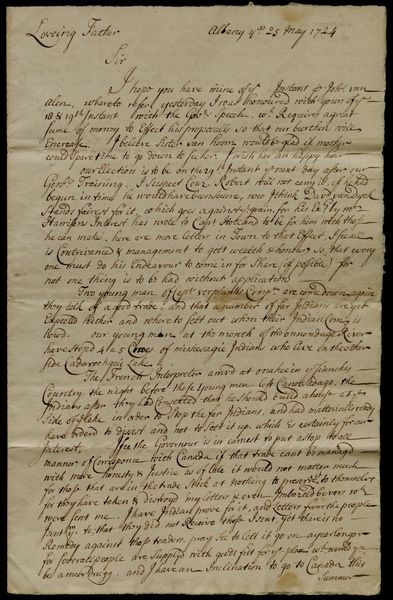 Loveing Father
Albany y.e 25 May 1724
Sir
I hope you have mine of y.e Instant p Joh.s van
Alen, whereto refer, yesterday I was honoured with yours of y.e
18 & 19th Instant with the Gov.rs Speech w.h Requires a great
sume of money to Effect his proposails so that our burthen will
Encrease. I beleve Sister van hoorn would be glad if mother
could spare time to go down to see her. I wish her an happy hour
our Election is to be on the 9th Instant y.e next day after our
Gen.ll Training. I suspect Coz.n Robert will not carry it, if he had
begun in time he would have been sure, now I think David van dyck
stands fairest for it, which goes against y.e grain, for his Ex.cy & m.r
Harisons Interest has wrote to Cap.t to be for him with those
he can make. here are more letters in Town to that Effect. I see all
is Contrivance & management to gett wealth & honour so that every
one must do his Endeavour to come in for share (if possible) for
not one thing is to be had without application
Two young men of Cap.t verplanks Comp.e are come down again
they talk of a good trade, and that a number of far Indians are yet
Expected hither and where to sett out when their Indian Corn is
howd. our young men at the month of th'onnondage River
have stopd 4 a 5 Canoes of missesagie Indians who live on the other
side Cadarochqui Lake
The French Interpreter arrived at onahee in y.e Sinnekes
Country the night before these young men left Canossodage, the
Indians after they had Consented that he should build a house at y.e
side of y.e Lake in order to stop the far Indians, and had matterials ready
have orderd to desist and not to sett it up. which is certainly for our
Interest. I see the Governour is in earnest to put a stop to all
manner of Corresponce with Canada if that trade cant be manag'd
with more honesty & Justice as of late it would not matter much
for those that are in the trade stick at nothing to preserve it to themselves
for they have taken & distroyd my letters & even Imbazeld bevers w.h
were sent me. I have Indians prove for it, and Letters from the people
to, that they did not Receive those I sent. yet there is no
Remedy against those traders. pray S.r to lett it go on a year longer
for severall people are supplyd with goods fitt for y.t place w.h would y.n
be a meer Drugg. and I have an Inclination to go to Canada this
Summer